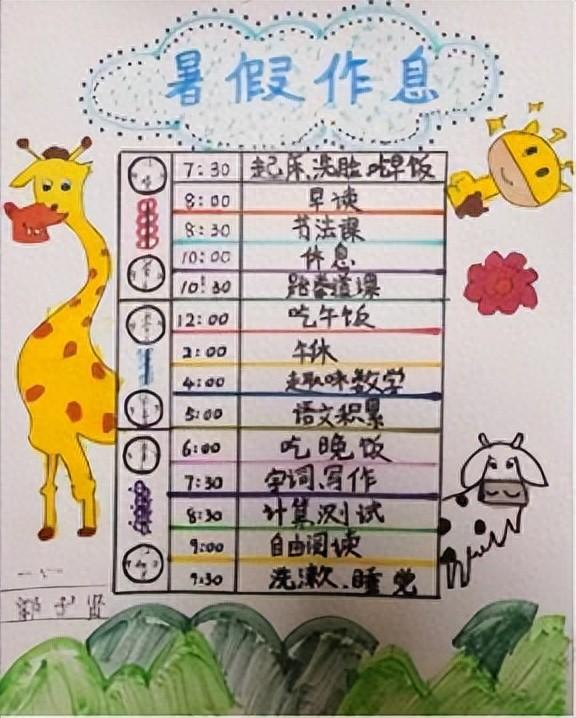 暑假作息
7:30 起床、洗脸、吃早饭
8:00 早读
8:30 书法课
10:00 休息
10:30 跆拳道课
12:00 吃午饭
2:00 午休
4:00 趣味数学
5:00 语文积累
6:00 吃晚饭
7:30 字词、写作
8:30 计算、测试
9:00 自由阅读
9:30 洗漱、睡觉